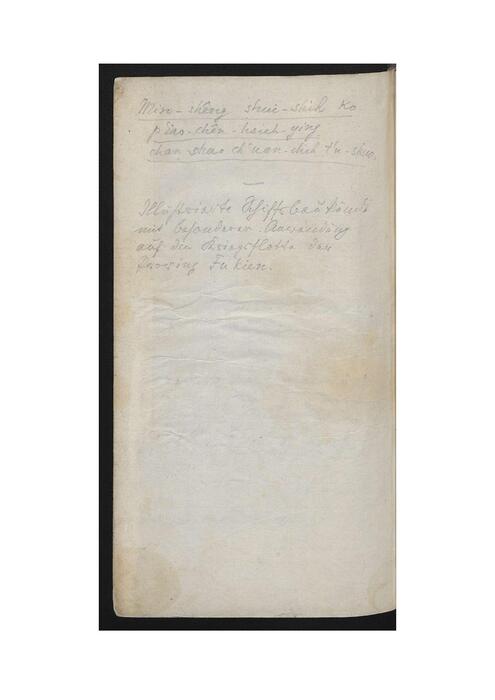 Min-shêng shui-shih ko
piao-chên-hsieh-ying
chan shao ch'uan-chih t'u-shuo.
—
Illustrierte Schiffsbaukunde
mit besonderer Anwendung
auf die Kriegsflotte der
Provinz Fukien.